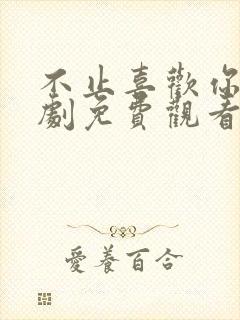 不止喜歡你
劇免費觀看
愛養百合